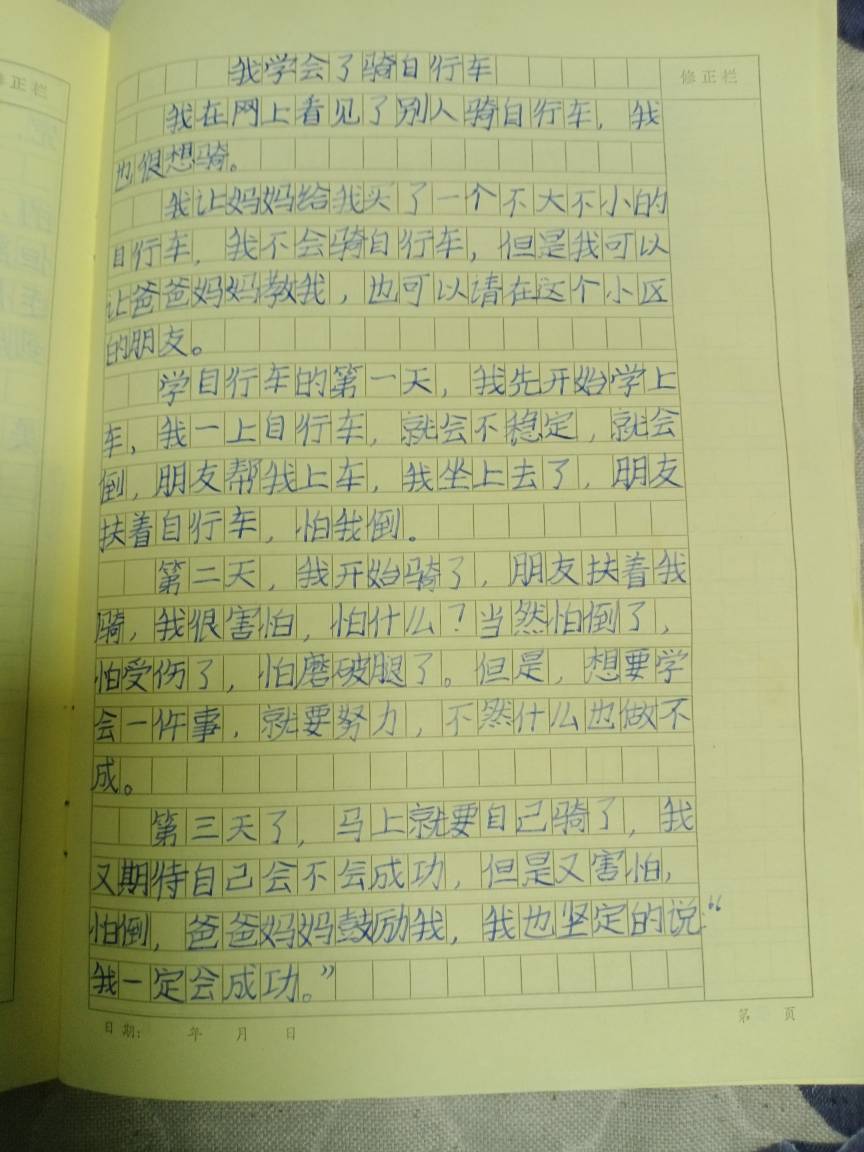 修正栏
我学会了骑自行车
修正栏
我在网上看见了别人骑自行车，我
也很想骑。
我让妈妈给我买了一个不大不小的
自行车，我不会骑自行车，但是我可以
让爸爸妈妈教我，也可以请在这个小区
的朋友。
学自行车的第一天，我先开始学上
车，我一上自行车，就会不稳定，就会
倒，朋友帮我上车，我坐上去了，朋友
扶着自行车，怕我倒。
第二天，我开始骑了，朋友扶着我
骑，我很害怕，怕什么？当然怕倒了，
怕受伤了，怕磨破腿了。但是，想要学
会一件事，就要努力，不然什么也做不
成。
第三天了，马上就要自己骑了，我
又期待自己会不会成功，但是又害怕，
怕倒，爸爸妈妈鼓励我，我也坚定的说：“
我一定会成功。”
日期： 年 月 日
第 页